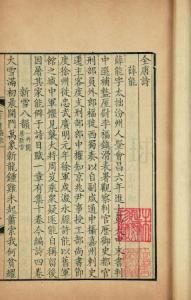 全唐詩
薛能
薛能字太拙汾州人登會昌六年進士第
中選補盩厔尉李福鎮滑表署觀察判官歷御史都官
刑部員外郎福徙西蜀奏以自副咸通中攝嘉州刺史
遷主客度支刑部郎中
度徐州徙忠武廣明元年徐軍戍溵水經許能以舊軍
館之城中軍懼見襲大將周岌乘衆疑逐能自稱留後
因屠其家能僻于詩日賦一章有集十卷今編詩四卷
新雪八韻
大雪滿初晨開門萬象新龍鍾雞未起蕭索我何貧耀